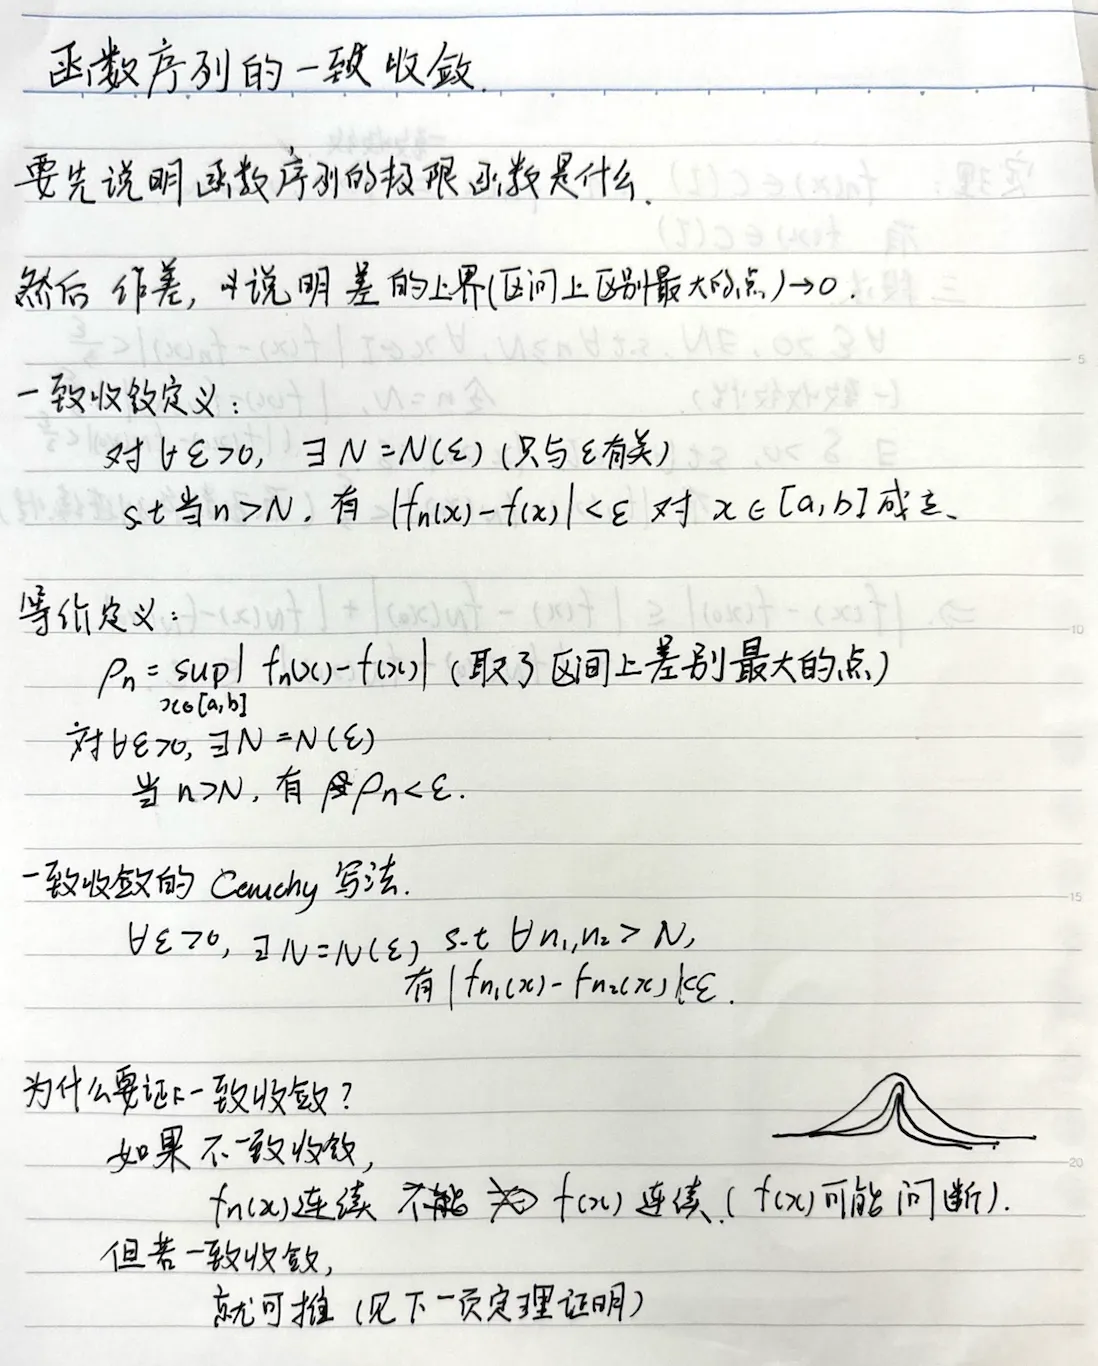 函数序列的一致收敛.
要先说明函数序列的极限函数是什么.
然后 作差, 说明差的上界(区间上区别最大的点)→0.
一致收敛定义:
对∀ε>0, ∃N=N(ε) (只与ε有关)
s.t 当n>N, 有 |fn(x)-f(x)|<ε 对 x∈[a,b]成立.
等价定义:
ρn = sup| fn(x)-f(x)| (取了区间上差别最大的点)
x∈[a,b]
对∀ε>0, ∃N=N(ε)
当 n>N, 有 ρn<ε.
一致收敛的 Cauchy 写法.
∀ε>0, ∃N=N(ε) s.t ∀n₁,n₂>N,
有|fn₁(x)-fn₂(x)|<ε.
为什么要证一致收敛?
如果不一致收敛,
fn(x)连续 不能 ⇒ f(x) 连续.( f(x)可能间断).
但若一致收敛,
就可推 (见下一页定理证明)
5
10
15
20